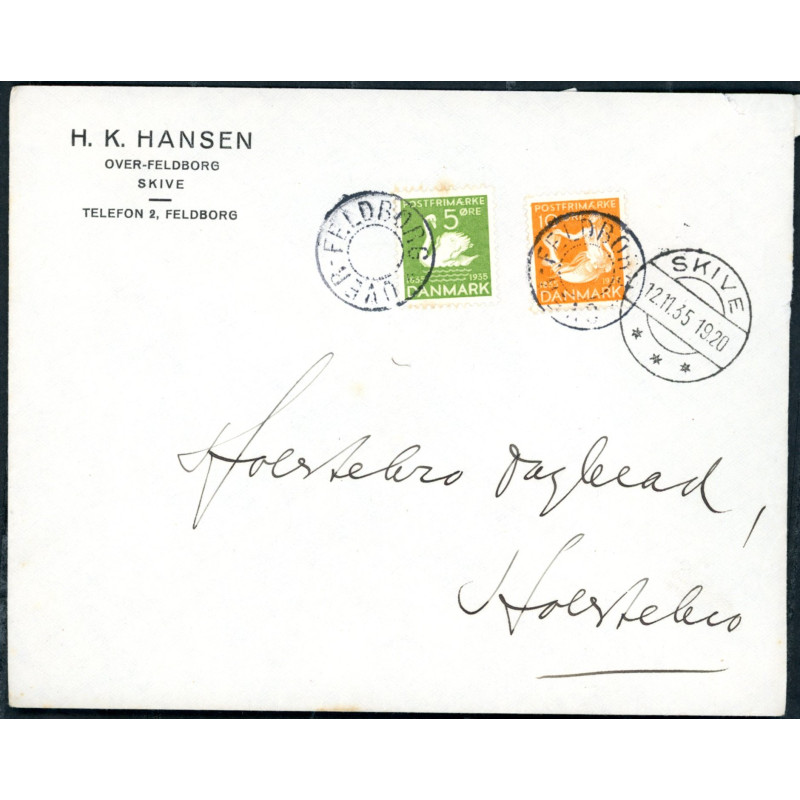 H. K. HANSEN
OVER-FELDBORG
SKIVE
TELEFON 2, FELDBORG
POSTFRIMÆRKE
5 ØRE
1635 1935
DANMARK
OVER-FELDBORG
POSTFRIMÆRKE
10
1635
DANMARK
SKIVE
12.11.35 19.20
Holstebro Dagblad,
Holstebro